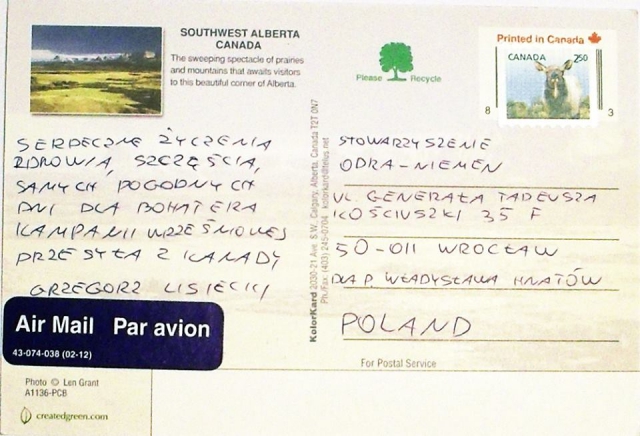 SOUTHWEST ALBERTA
CANADA
The sweeping spectacle of prairies
and mountains that awaits visitors
to this beautiful corner of Alberta.
Please Recycle
Printed in Canada
CANADA 250
8 3
SERDECZNE ŻYCZENIA
ZDROWIA, SZCZĘŚCIA,
SAMYCH POGODNYCH
DNI DLA BOHATERA
KAMPANII WRZEŚNIOWEJ
PRZESYŁA Z KANADY
GRZEGORZ LISIECKI
Air Mail Par avion
43-074-038 (02-12)
Photo © Len Grant
A1136-PCB
createdgreen.com
KolorKard 2030-21 Ave. S.W., Calgary, Alberta, Canada T2T 0N7
Ph./Fax: (403) 245-0704 kolorkard@telus.net
STOWARZYSZENIE
ODRA-NIEMEN
UL. GENERAŁA TADEUSZA
KOŚCIUSZKI 35 F
50-011 WROCŁAW
DLA P. WŁADYSŁAWA HNATÓW
POLAND
For Postal Service